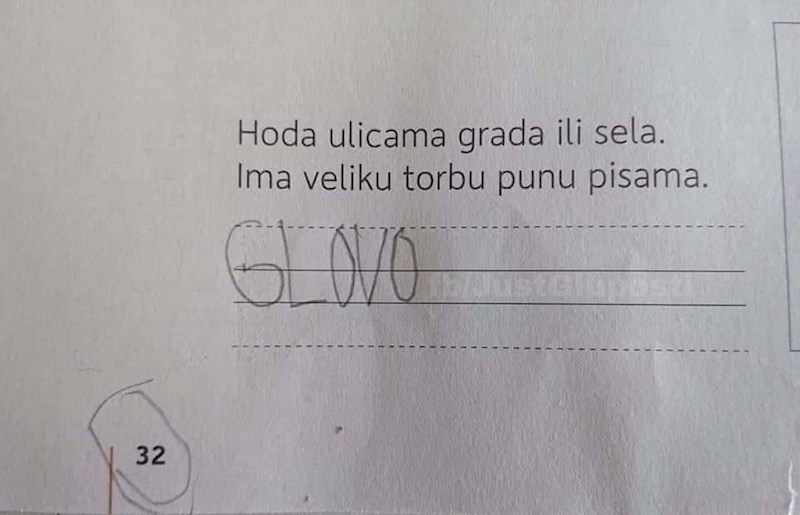 Hoda ulicama grada ili sela.
Ima veliku torbu punu pisama.
GLOVO
fb/JustGluposti
32